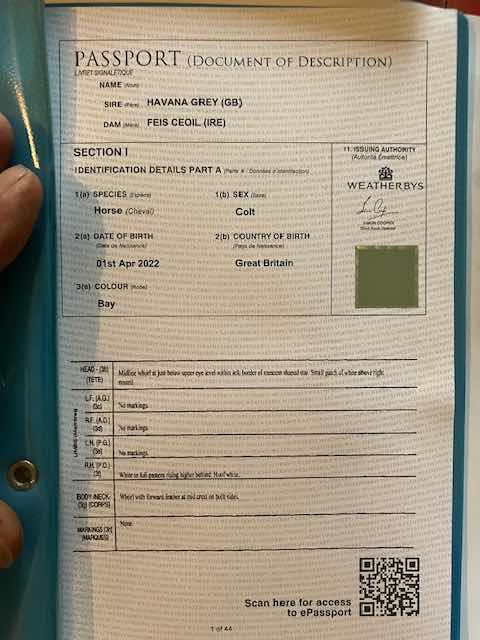 PASSPORT (DOCUMENT OF DESCRIPTION)
LIVRET SIGNALETIQUE
NAME (Nom)
SIRE (Père) HAVANA GREY (GB)
DAM (Mère) FEIS CEOIL (IRE)
SECTION I
IDENTIFICATION DETAILS PART A (Partie A - Données d'identification)
11. ISSUING AUTHORITY
(Autorité Émettrice)
WEATHERBYS
SIMON COOPER
1(a) SPECIES (Espèce) 1(b) SEX (Sexe)
Horse (Cheval) Colt
2(a) DATE OF BIRTH 2(b) COUNTRY OF BIRTH
(Date de Naissance) (Pays de Naissance)
01st Apr 2022 Great Britain
3(a) COLOUR (Robe)
Bay
HEAD - (3b) Midline whorl at just below upper eye level within left border of crescent shaped star. Small patch of white above right
(TETE) nostril.
LIMBS (Membres)
L.F. (A.G.)
(3c) No markings.
R.F. (A.D.)
(3d) No markings.
L.H. (P.G.)
(3e) No markings.
R.H. (P.D.)
(3f) White to full pastern rising higher behind. Hoof white.
BODY /NECK Whorl with forward feather at mid crest on both sides.
(3g) (CORPS)
MARKINGS (3h) None.
(MARQUES)
Scan here for access
to ePassport
1 of 44